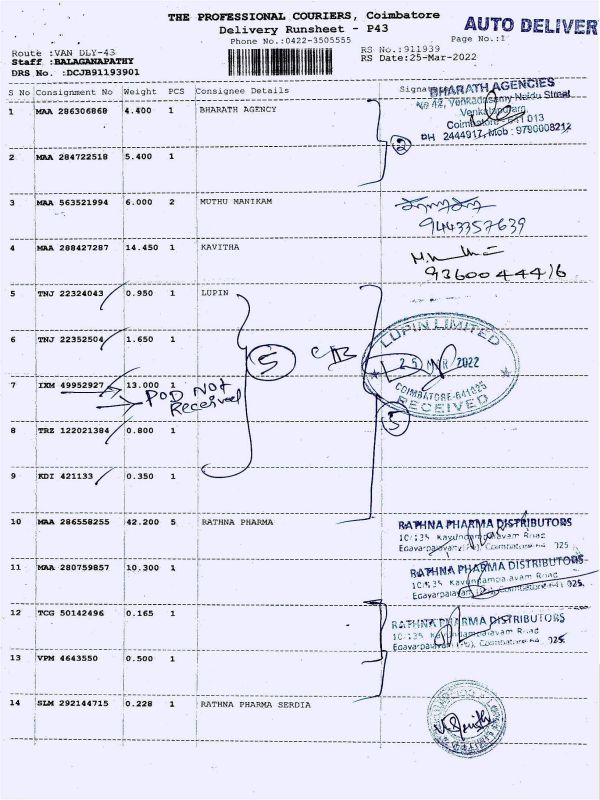 THE PROFESSIONAL COURIERS, Coimbatore
AUTO DELIVER
Delivery Runsheet - P43
Phone No.:0422-3505555
Page No.:1
Route :VAN DLY-43
RS No.:911939
Staff :BALAGANAPATHY
RS Date:25-Mar-2022
DRS No. :DCJB91193901
S No Consignment No Weight PCS Consignee Details
BHARATH AGENCIES
No 42, Venkadasamy Naidu Street
Coimbatore - 641 013
PH 2444917, Mob : 9790008212
1 MAA 286306868 4.400 1 BHARATH AGENCY
2
2 MAA 284722518 5.400 1
3 MAA 563521994 6.000 2 MUTHU MANIKAM
9443357639
4 MAA 288427287 14.450 1 KAVITHA
9360044416
5 TNJ 22324043 0.950 1 LUPIN
6 TNJ 22352504 1.650 1
5
LUPIN LIMITED
25 MAR 2022
COIMBATORE-641025
RECEIVED
7 IXM 49952927 13.000 1
POD Not
Received
5
8 TRZ 122021384 0.800 1
9 KDI 421133 0.350 1
10 MAA 286558255 42.200 5 RATHNA PHARMA
RATHNA PHARMA DISTRIBUTORS
10/135 Kavundampalayam Road
11 MAA 280759857 10.300 1
RATHNA PHARMA DISTRIBUTORS
10/135 Kavundampalayam Road
12 TCG 50142496 0.165 1
RATHNA PHARMA DISTRIBUTORS
10/135 Kavundampalayam Road
13 VPM 4643550 0.500 1
14 SLM 292144715 0.228 1 RATHNA PHARMA SERDIA